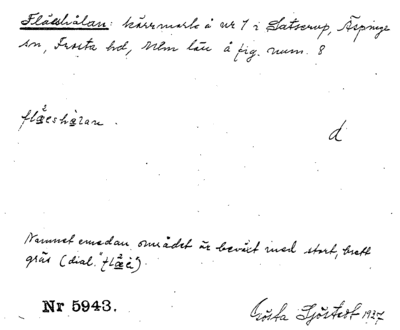 Flååshålan: kärrmark å nr 7 i Satserup, Äspinge
sn, Frosta hd, Mlm län å fig. num. 8
d
Namnet emedan området är beväxt med stort, brett
gräs (dial.
Nr 5943.
Gösta Sjöstedt 1927